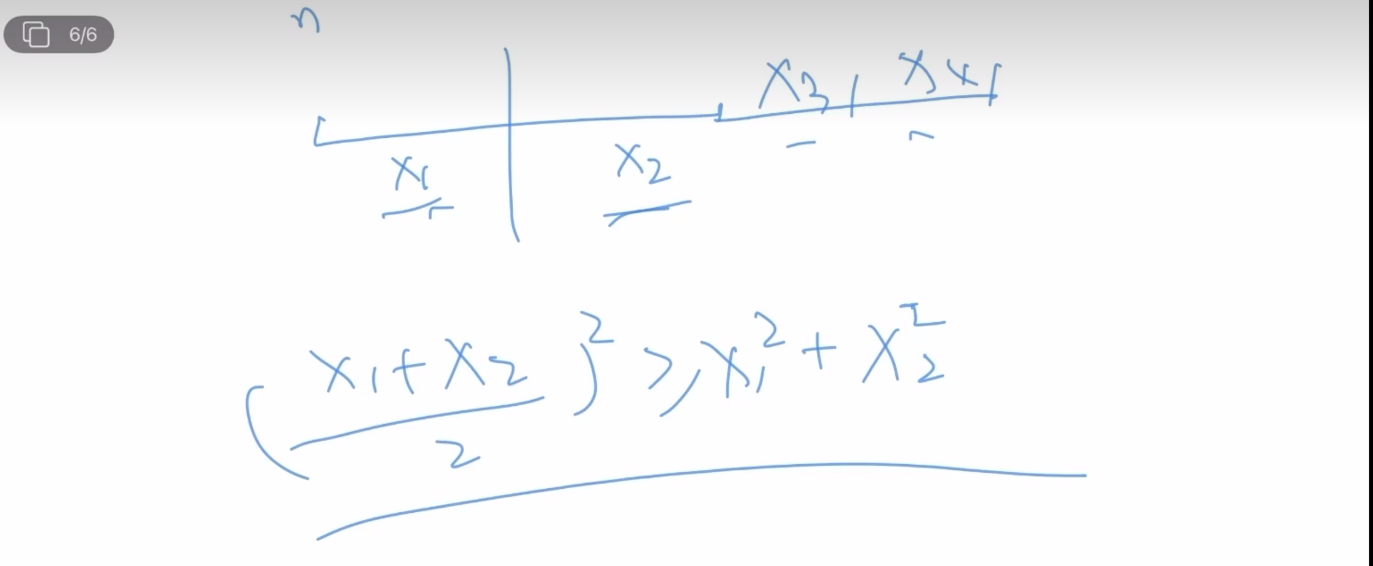 6/6
n
x₃, x₄,
x₁ x₂
(x₁+x₂ / 2)² ≥ x₁² + x₂²